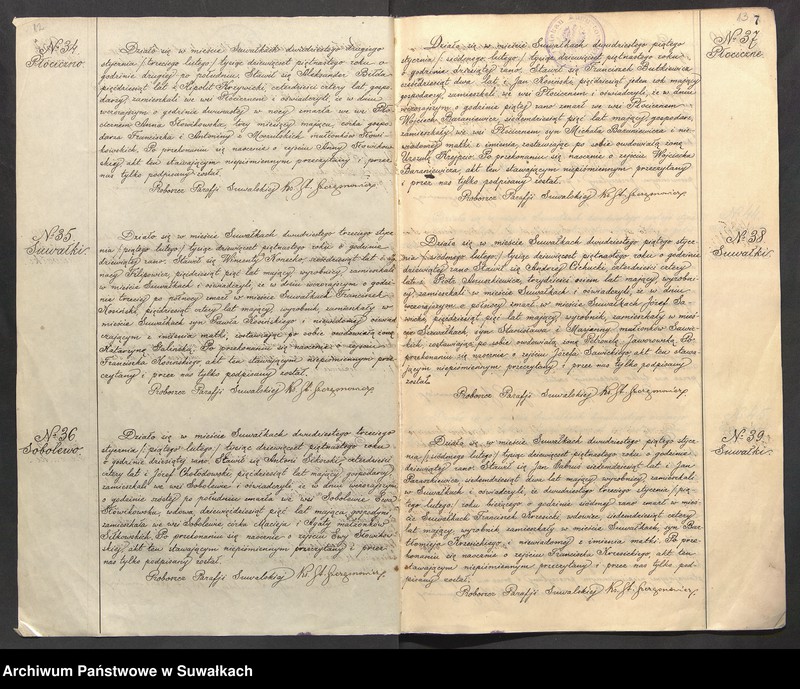 12
№ 34
Płociczno.
Działo się w mieście Suwałkach dwudziestego drugiego
stycznia /:czwartego lutego:/ tysiąc dziewięćset piętnastego roku o
godzinie drugiej po południu. Stawił się Aleksander
pięćdziesiąt lat i Hipolit czterdzieści cztery lat gospo-
darzy zamieszkali we wsi Płocicznie i oświadczyli, że w dniu
wczorajszym o godzinie dwunastej w nocy zmarła we wsi Pło-
cicznie Anna Słowikowska, trzy miesiące mająca, córka gospo-
darza Franciszka i Antoniny z małżonków Słowi-
kowskich. Po przekonaniu się naocznie o zejściu Anny Słowikow-
skiej akt ten stawającym niepiśmiennym przeczytany i przez
nas tylko podpisany został.
Proboszcz Parafji Suwalskiej Ks. St.
№ 35.
Suwałki.
Działo się w mieście Suwałkach dwudziestego trzeciego stycz-
nia /:piątego lutego:/ tysiąc dziewięćset piętnastego roku o godzinie
dziewiątej rano. Stawił się Wincenty lat i
pięćdziesiąt pięć lat mający wyrobnicy, zamieszkali
w mieście Suwałkach i oświadczyli, że w dniu wczorajszym o godzi-
nie trzeciej po północy zmarł w mieście Suwałkach Franciszek
Kosiński, pięćdziesiąt cztery lat mający wyrobnik, zamieszkały w
mieście Suwałkach syn Pawła Kosińskiego i niewiadomej oświad-
czającym z imienia matki, zostawiając po sobie owdowiałą żonę
Katarzynę Galińską. Po przekonaniu się naocznie o zejściu
Franciszka Kosińskiego akt ten stawającym niepiśmiennym prze-
czytany i przez nas tylko podpisany został.
Proboszcz Parafji Suwalskiej Ks. St.
№ 36
Sobolewo.
Działo się w mieście Suwałkach dwudziestego trzeciego
stycznia /:piątego lutego:/ tysiąc dziewięćset piętnastego roku
o godzinie dziesiątej rano. Stawił się Antoni czterdzieści
cztery lat i Józef Chołodowski, pięćdziesiąt lat mający gospodarzy
zamieszkali we wsi Sobolewie i oświadczyli, że w dniu wczorajszym
o godzinie szóstej po południu zmarła we wsi Sobolewie Ewa
Słowikowska, wdowa, dziewięćdziesiąt pięć lat mająca, gospodyni
zamieszkała we wsi Sobolewie córka Macieja i Agaty małżonków
Po przekonaniu się naocznie o zejściu Ewy Słowikow-
skiej akt ten stawającym niepiśmiennym przeczytany i przez
nas tylko podpisany został.
Proboszcz Parafji Suwalskiej Ks. St.
13 7
№ 37
Płociczne.
Działo się w mieście Suwałkach dwudziestego piątego
stycznia /:siódmego lutego:/ tysiąc dziewięćset piętnastego roku
o godzinie dziesiątej rano. Stawił się Franciszek Butkiewicz
sześćdziesiąt dwa lat i Jan Kosiński pięćdziesiąt jeden rok mający
gospodarzy, zamieszkali we wsi Płocicznem i oświadczyli, że w dniu
wczorajszym o godzinie piątej rano zmarł we wsi Płocicznem
Wojciech Baraniewicz, siedemdziesiąt pięć lat mający gospodarz,
zamieszkały we wsi Płocicznem syn Michała Baraniewicza i nie-
wiadomej matki z imienia, zostawiając po sobie owdowiałą żonę
Urszulę Po przekonaniu się naocznie o zejściu Wojciecha
Baraniewicza, akt ten stawającym niepiśmiennym przeczytany
i przez nas tylko podpisany został.
Proboszcz Parafji Suwalskiej Ks. St.
№ 38
Suwałki.
Działo się w mieście Suwałkach dwudziestego piątego stycz-
nia /:siódmego lutego:/ tysiąc dziewięćset piętnastego roku o godzinie
dziewiątej rano Stawił się Andrzej Cichucki, czterdzieści cztery
lata i Piotr trzydzieści osiem lat mający, wyrobni-
cy, zamieszkali w mieście Suwałkach i oświadczyli, że w dniu
wczorajszym o północy zmarł w mieście Suwałkach Józef Sa-
wicki, pięćdziesiąt pięć lat mający wyrobnik, zamieszkały w mieś-
cie Suwałkach, syn Stanisława i Marjanny małżonków Sawic-
kich, zostawiając po sobie owdowiałą żonę Petronelę Jaworowską. Po
przekonaniu się naocznie o zejściu Józefa Sawickiego akt ten stawa-
jącym niepiśmiennym przeczytany i przez nas tylko podpisany
został.
Proboszcz Parafji Suwalskiej Ks. St.
№ 39
Suwałki.
Działo się w mieście Suwałkach dwudziestego piątego stycz-
nia /:siódmego lutego:/ tysiąc dziewięćset piętnastego roku o godzinie
dziewiątej rano Stawił się Jan siedemdziesiąt lat i Jan
siedemdziesiąt dwa lat mający wyrobnicy, zamieszkali
w Suwałkach i oświadczyli, że dwudziestego trzeciego stycznia /:pią-
tego lutego:/ roku bieżącego o godzinie siódmej rano zmarł w mieś-
cie Suwałkach Franciszek Korsicki wdowiec, siedemdziesiąt cztery
lat mający wyrobnik, zamieszkały w mieście Suwałkach, syn Bar-
tłomieja Korsickiego i niewiadomej z imienia matki. Po prze-
konaniu się naocznie o zejściu Franciszka Korsickiego, akt ten
stawającym niepiśmiennym przeczytany i przez nas tylko pod-
pisany został.
Proboszcz Parafji Suwalskiej Ks. St.
Archiwum Państwowe w Suwałkach